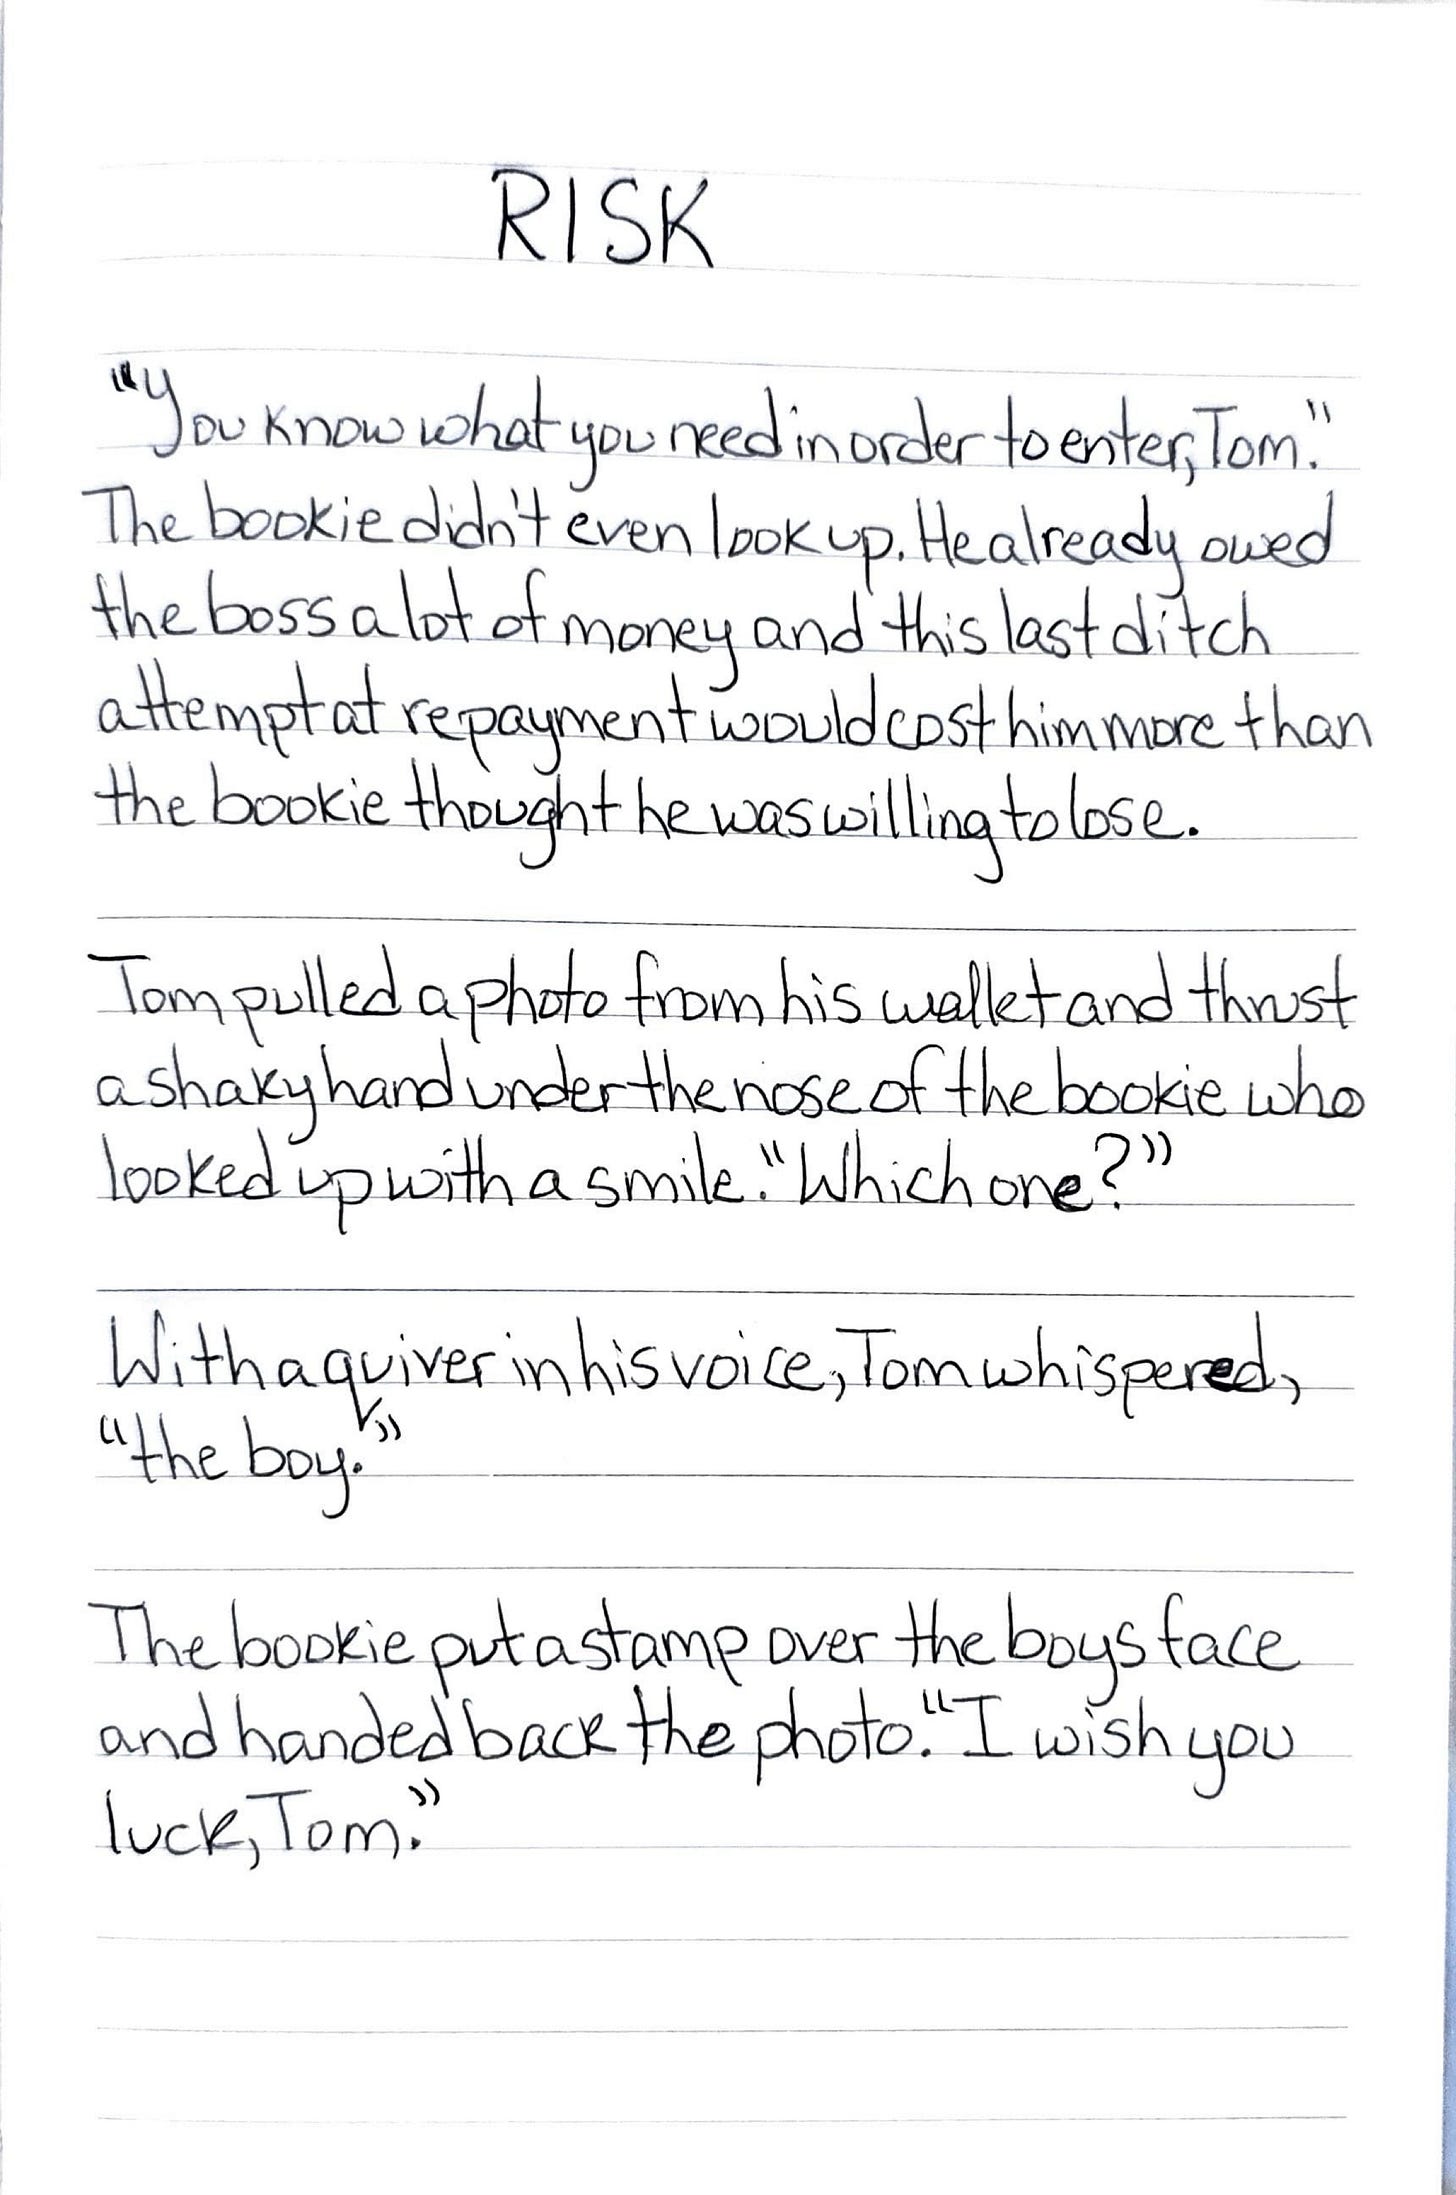 RISK
"You know what you need in order to enter, Tom."
The bookie didn't even look up. He already owed
the boss a lot of money and this last ditch
attempt at repayment would cost him more than
the bookie thought he was willing to lose.
Tom pulled a photo from his wallet and thrust
a shaky hand under the nose of the bookie who
looked up with a smile. "Which one?"
With a quiver in his voice, Tom whispered,
"the boy."
The bookie put a stamp over the boys face
and handed back the photo. "I wish you
luck, Tom."